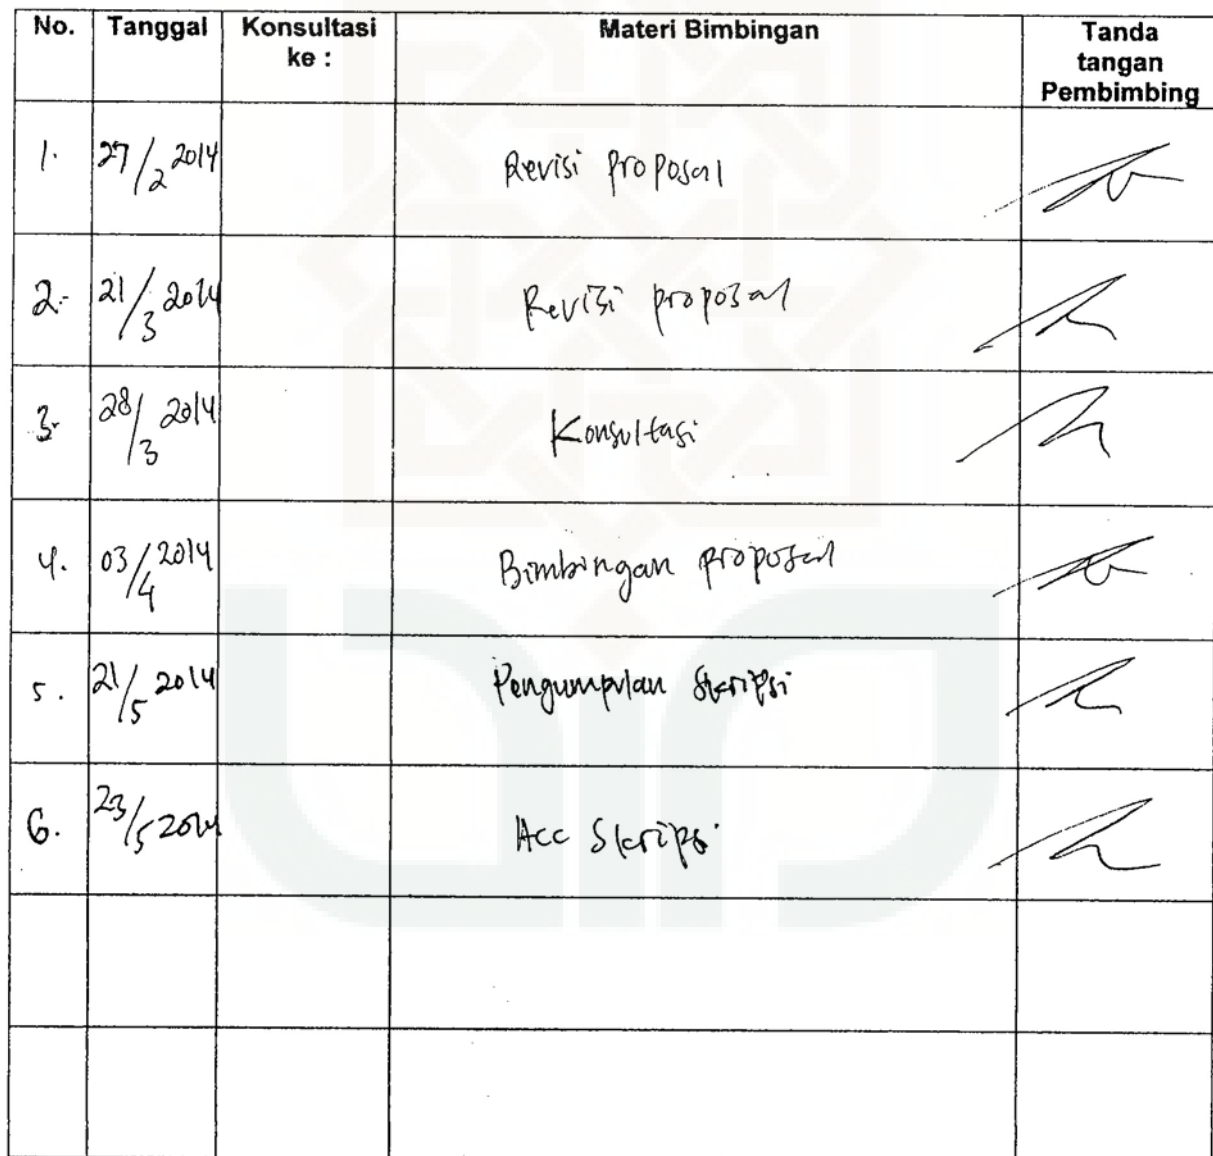 No. Tanggal Konsultasi ke : Materi Bimbingan Tanda tangan Pembimbing
1. 27/2 2014 Revisi proposal
2. 21/3 2014 Revisi proposal
3. 28/3 2014 Konsultasi
4. 03/4 2014 Bimbingan proposal
5. 21/5 2014 Pengumpulan Skripsi
6. 23/5 2014 Acc Skripsi